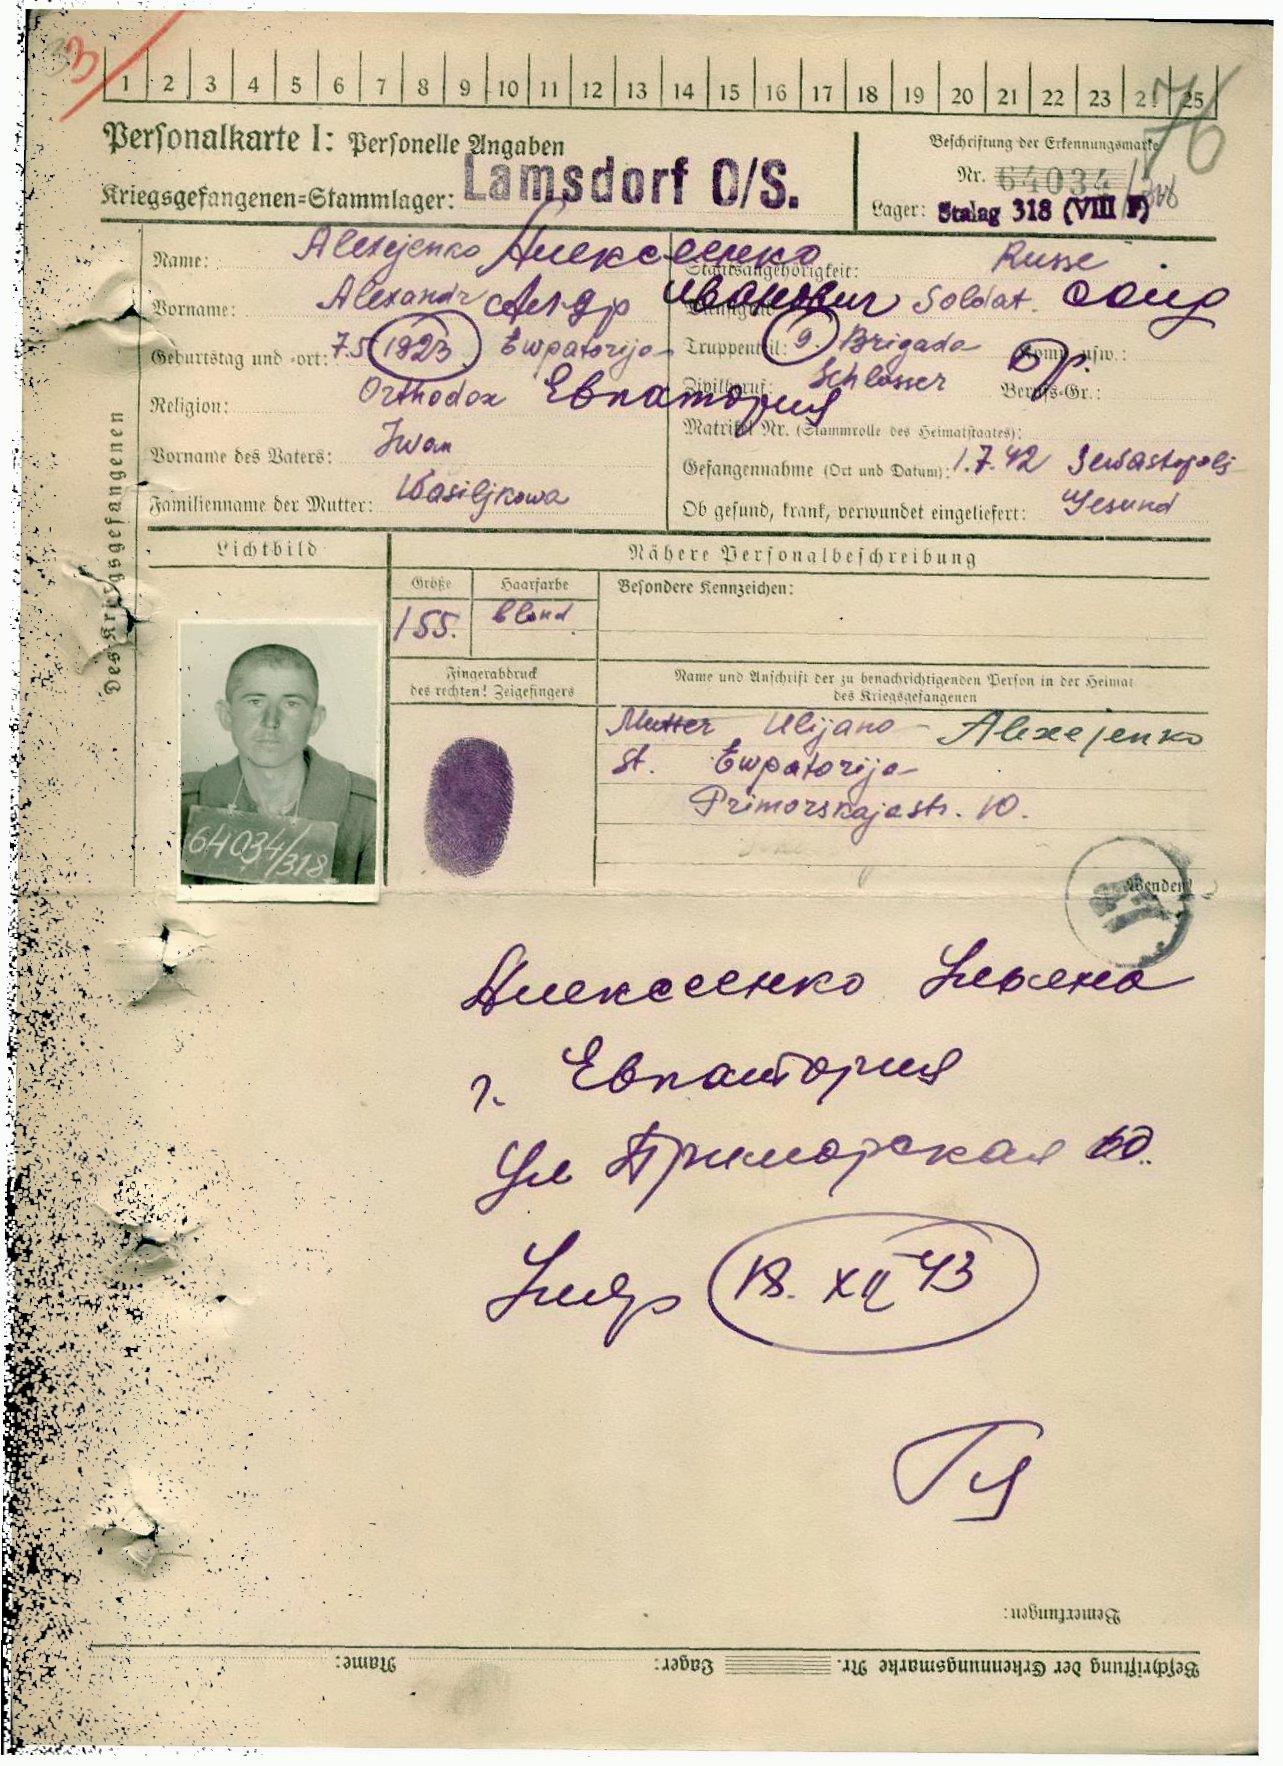 33
1 2 3 4 5 6 7 8 9 10 11 12 13 14 15 16 17 18 19 20 21 22 23 24 25
76
Personalkarte I: Personelle Angaben
Kriegsgefangenen=Stammlager: Lamsdorf O/S.
Beschriftung der Erkennungsmarke
Nr. 64034
Lager: Stalag 318 (VIII F)
Des Kriegsgefangenen
Name: Alexejenko Алексеенко
Vorname: Alexandr Иванович
Geburtstag und =ort: 7.5. 1923. Ewpatorija
Religion: Orthodox Евпатория
Vorname des Vaters: Iwan
Familienname der Mutter: Wasiljkowa
Staatsangehörigkeit: Russe
Dienstgrad: Soldat. солд
Truppenteil: 9. Brigada Komp. usw.: Бр.
Zivilberuf: Schlosser Berufs-Gr.:
Matrikel Nr. (Stammrolle des Heimatstaates):
Gefangennahme (Ort und Datum): 1.7.42 Sewastopolj
Ob gesund, krank, verwundet eingeliefert: Gesund
Lichtbild
Nähere Personalbeschreibung
Größe Haarfarbe Besondere Kennzeichen:
155. blond
Fingerabdruck
des rechten! Zeigefingers
Name und Anschrift der zu benachrichtigenden Person in der Heimat
des Kriegsgefangenen
Mutter Ulijana Alexejenko
St. Ewpatorija
Primorskajastr. 10.
64034/318
Wenden!
Алексеенко Ульяна
г. Евпатория
ул Приморская 10.
Умер 18. XII 43
Bemerkungen:
Beschriftung der Erkennungsmarke Nr. Lager: Name: